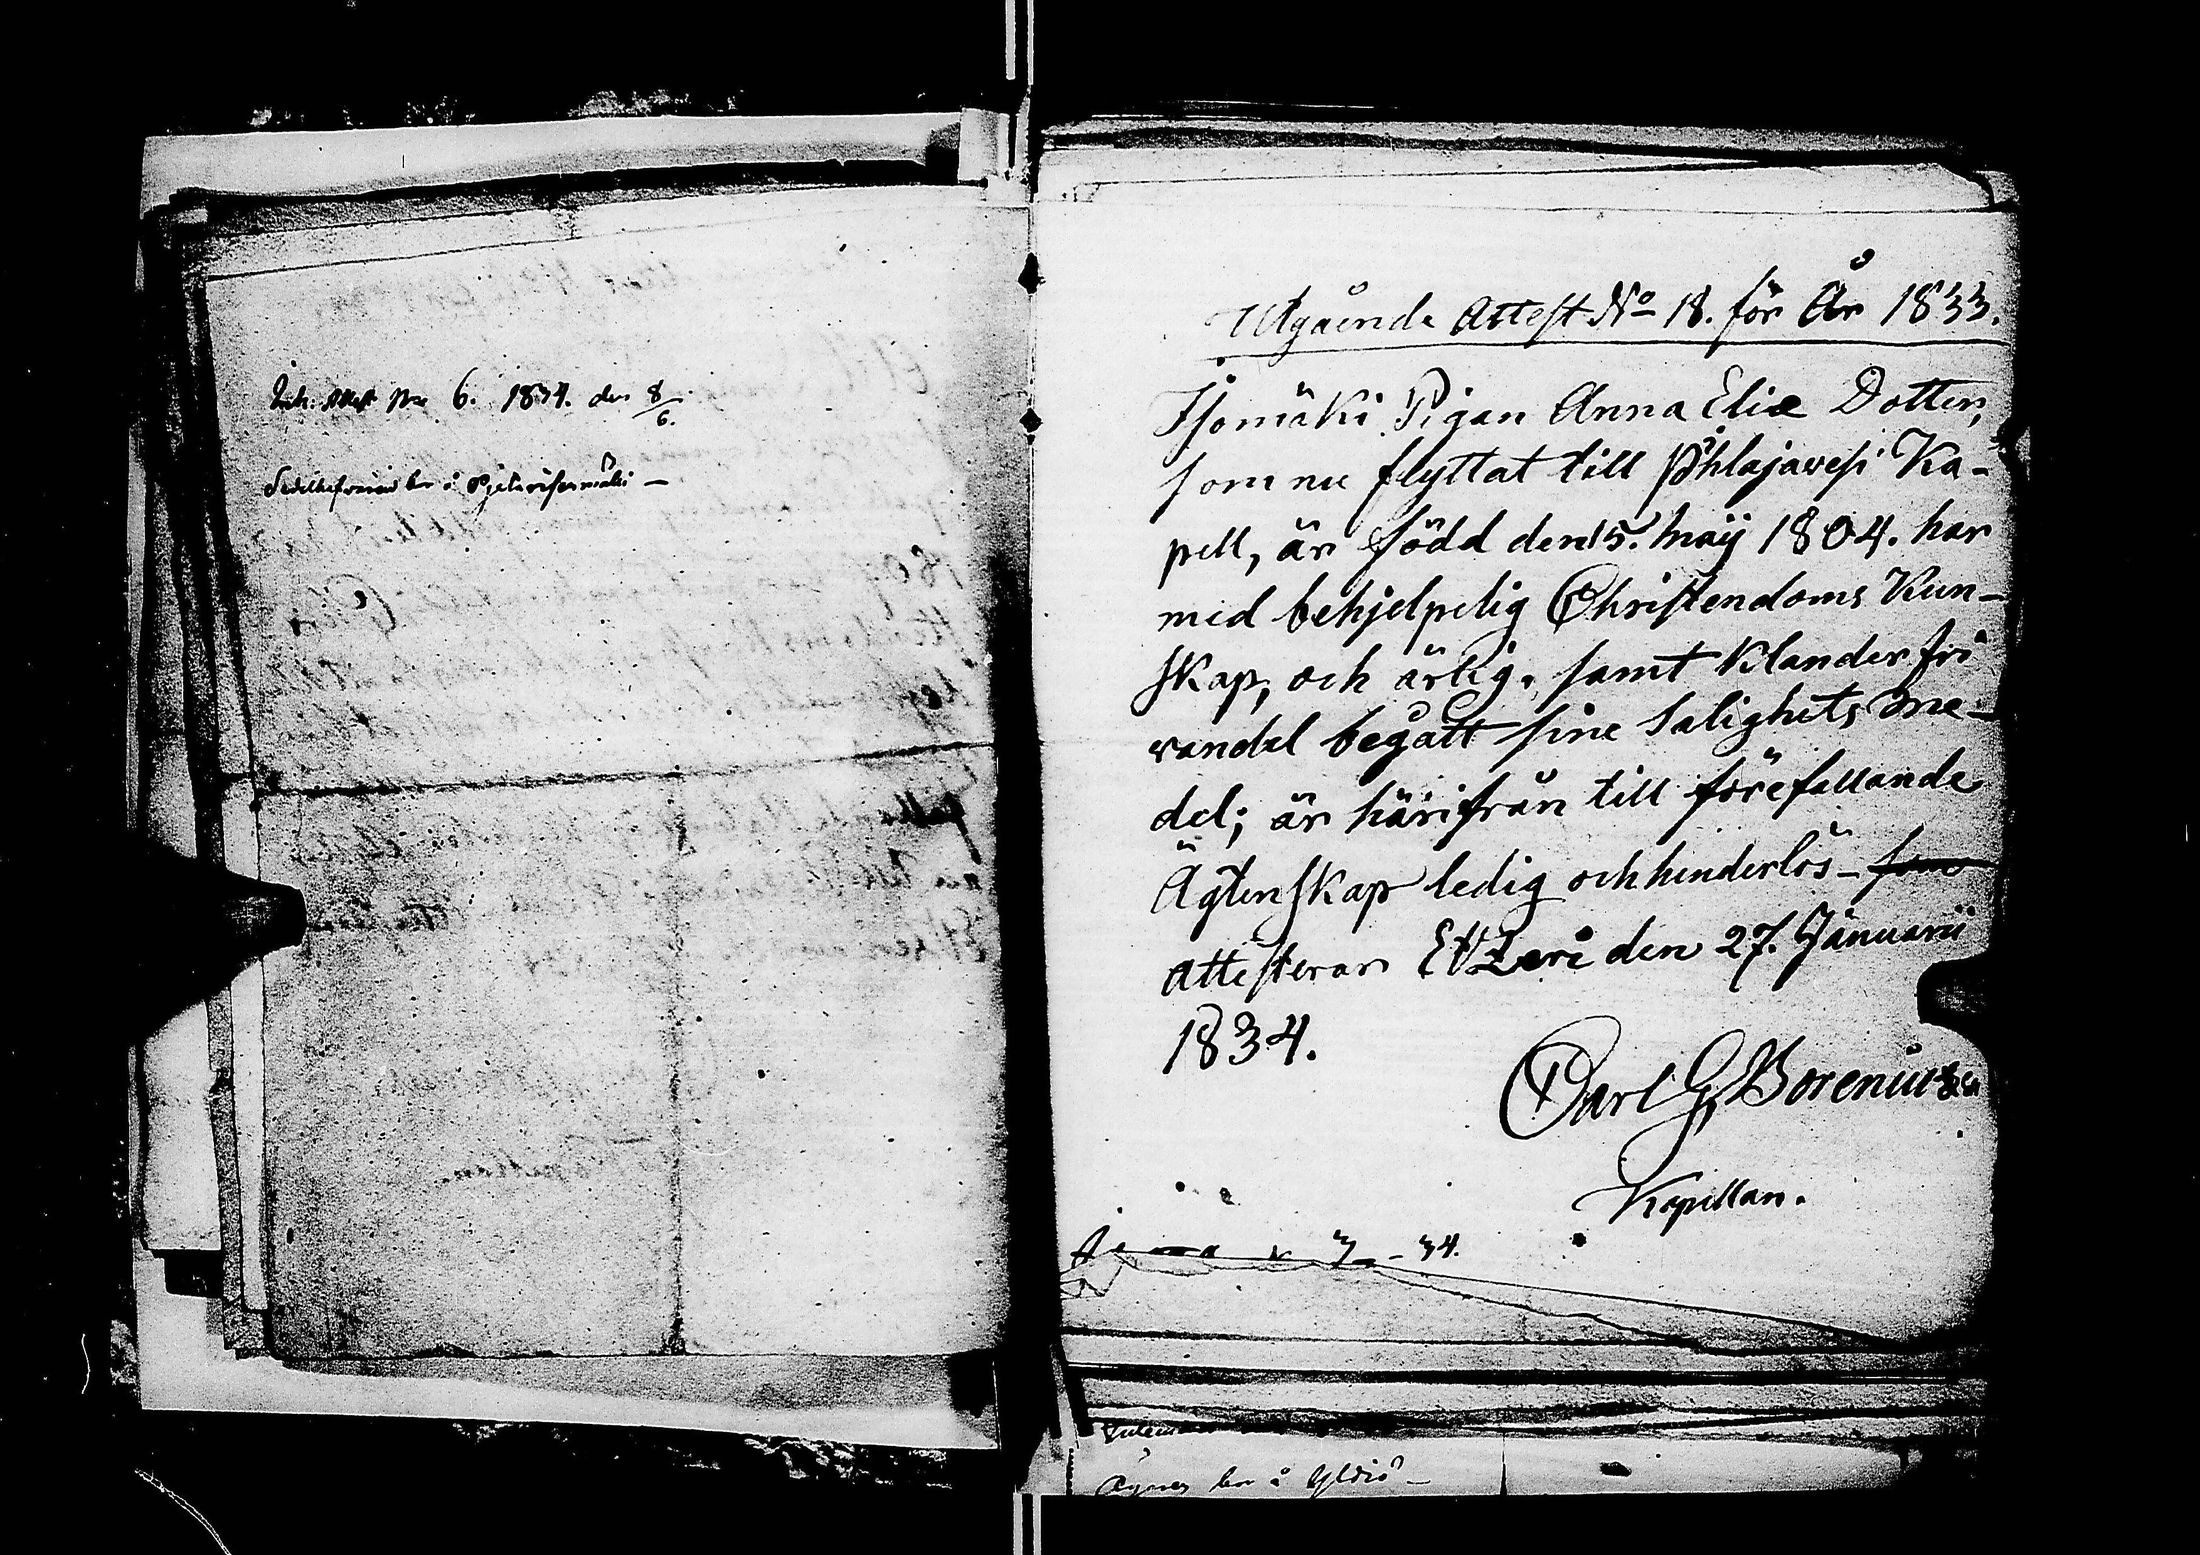 Ink: Attest No 6. 1834. den 8/6.
bor å
Utgående Attest No 18. för År 1833.
Isomäki Pigan Anna Eliæ Dotter,
som nu flyttat till Pihlajavesi Ka-
pell, är född den 15. maÿ 1804. har
med behjelpelig Christendoms Kun-
skap, och ärlig. samt Klanderfri
vandel begått sine Salighets me-
del; är härifrån till förefallande
Ägtenskap ledig och hinderlös - som
attesterar Etzeri den 27. Januarii
1834.
Carl G Borenius
Kapellan.
3 - 34.
bor å